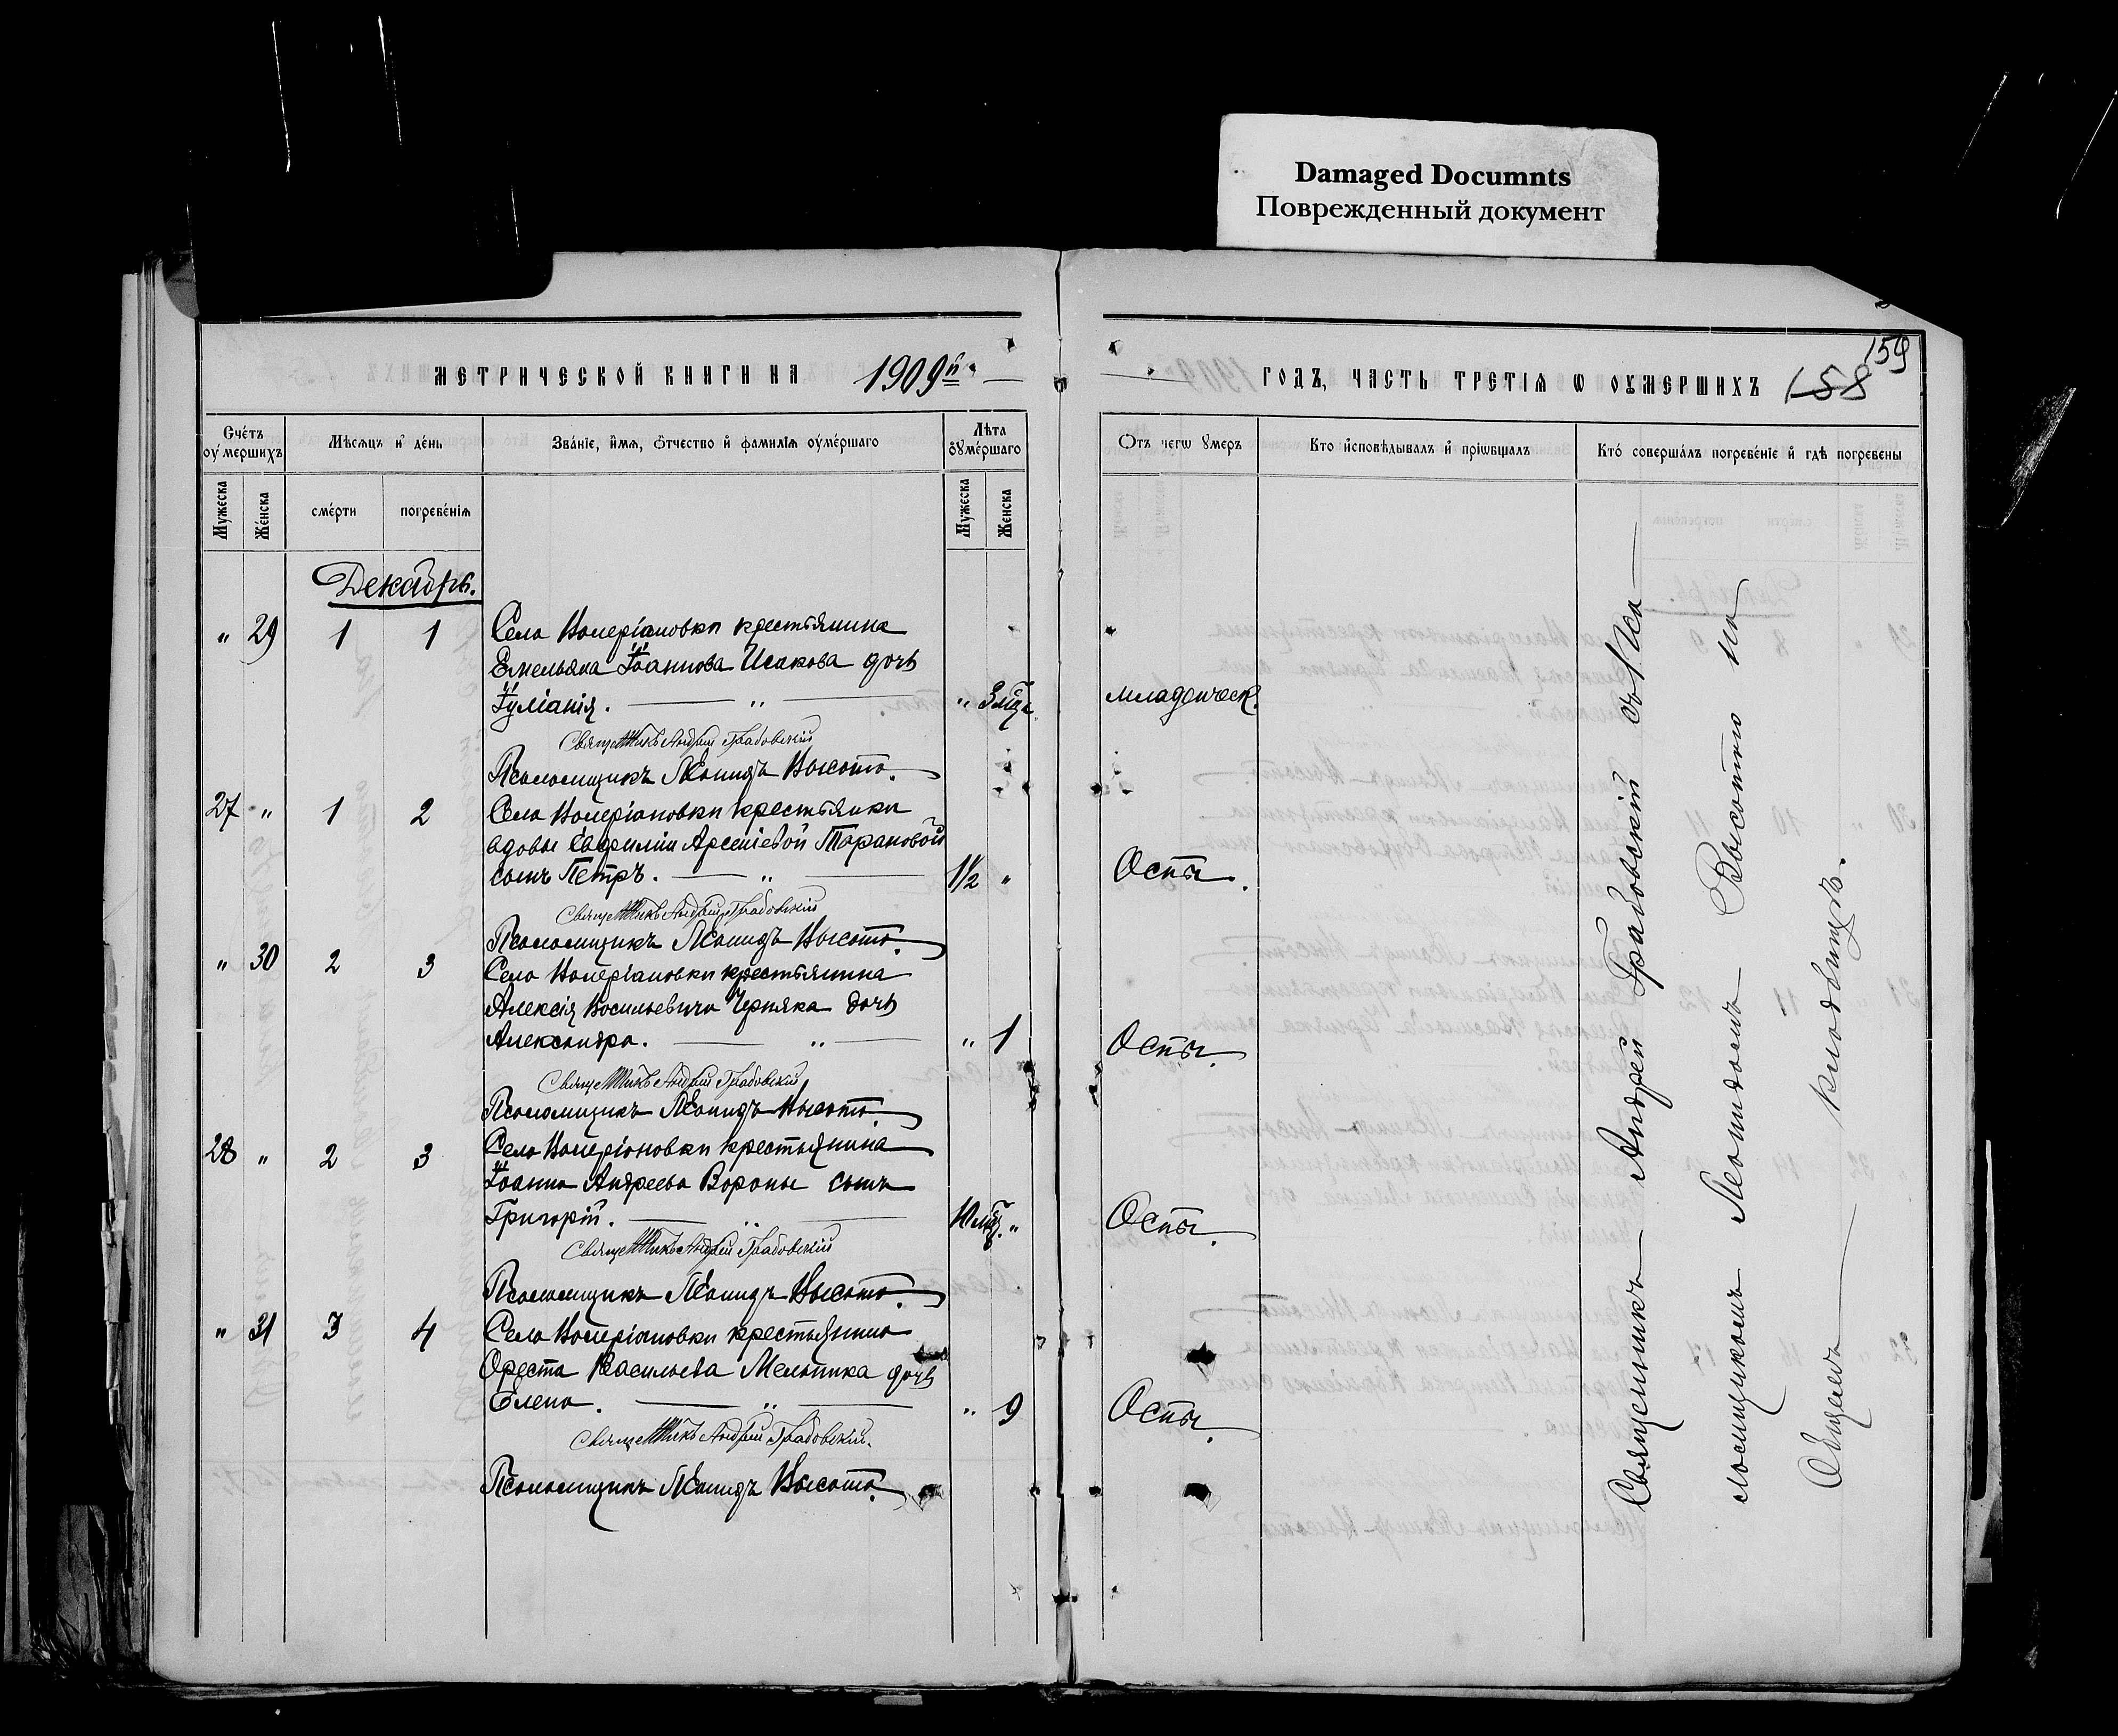 Damaged Documnts
Поврежденный документ
159
МЕТРИЧЕСКОЙ КНИГИ НА 1909й
ГОДЪ, ЧАСТЬ ТРЕТІЯ Ѡ ОУМЕРШИХЪ 158
Счетъ оумершихъ
Мѣсяцъ и день
Званіе, имя, ѿчество и фамилія оумершаго
Лѣта оумершаго
Отъ чегѡ умеръ
Кто исповѣдывалъ и пріѡбщалъ
Кто совершалъ погребеніе и гдѣ погребены
Мужеска
Женска
смерти
погребенія
Мужеска
Женска
Декабрь.
" 29 1 1 Села Валеріановки крестьянина
Емельяна Іоаннова Исакова дочь
Іуліанія. — " — " 3 мѣс. младенческ.
Священникъ Андрей Грабовскій
Псаломщикъ Леонидъ Высота.
27 " 1 2 Села Валеріановки крестьянки
вдовы Евфиміи Арсеніевой Тарановой
сынъ Петръ. — " — 1½ " Оспы.
Священникъ Андрей Грабовскій
Псаломщикъ Леонидъ Высота.
" 30 2 3 Села Валеріановки крестьянина
Алексія Васильевича Черняка дочь
Александра. — " — " 1 Оспы.
Священникъ Андрей Грабовскій
Псаломщикъ Леонидъ Высота.
28 " 2 3 Села Валеріановки крестьянина
Іоанна Андреева Вороны сынъ
Григорій. — " — 10 мѣс. " Оспы.
Священникъ Андрей Грабовскій
Псаломщикъ Леонидъ Высота.
" 31 3 4 Села Валеріановки крестьянина
Ореста Васильева Мельника дочь
Елена. — " — " 9 Оспы.
Священникъ Андрей Грабовскій.
Псаломщикъ Леонидъ Высота.
Священникъ Андрей Грабовскій съ Пса-
ломщикомъ Леонидомъ Высотою на
Общемъ кладбищѣ.